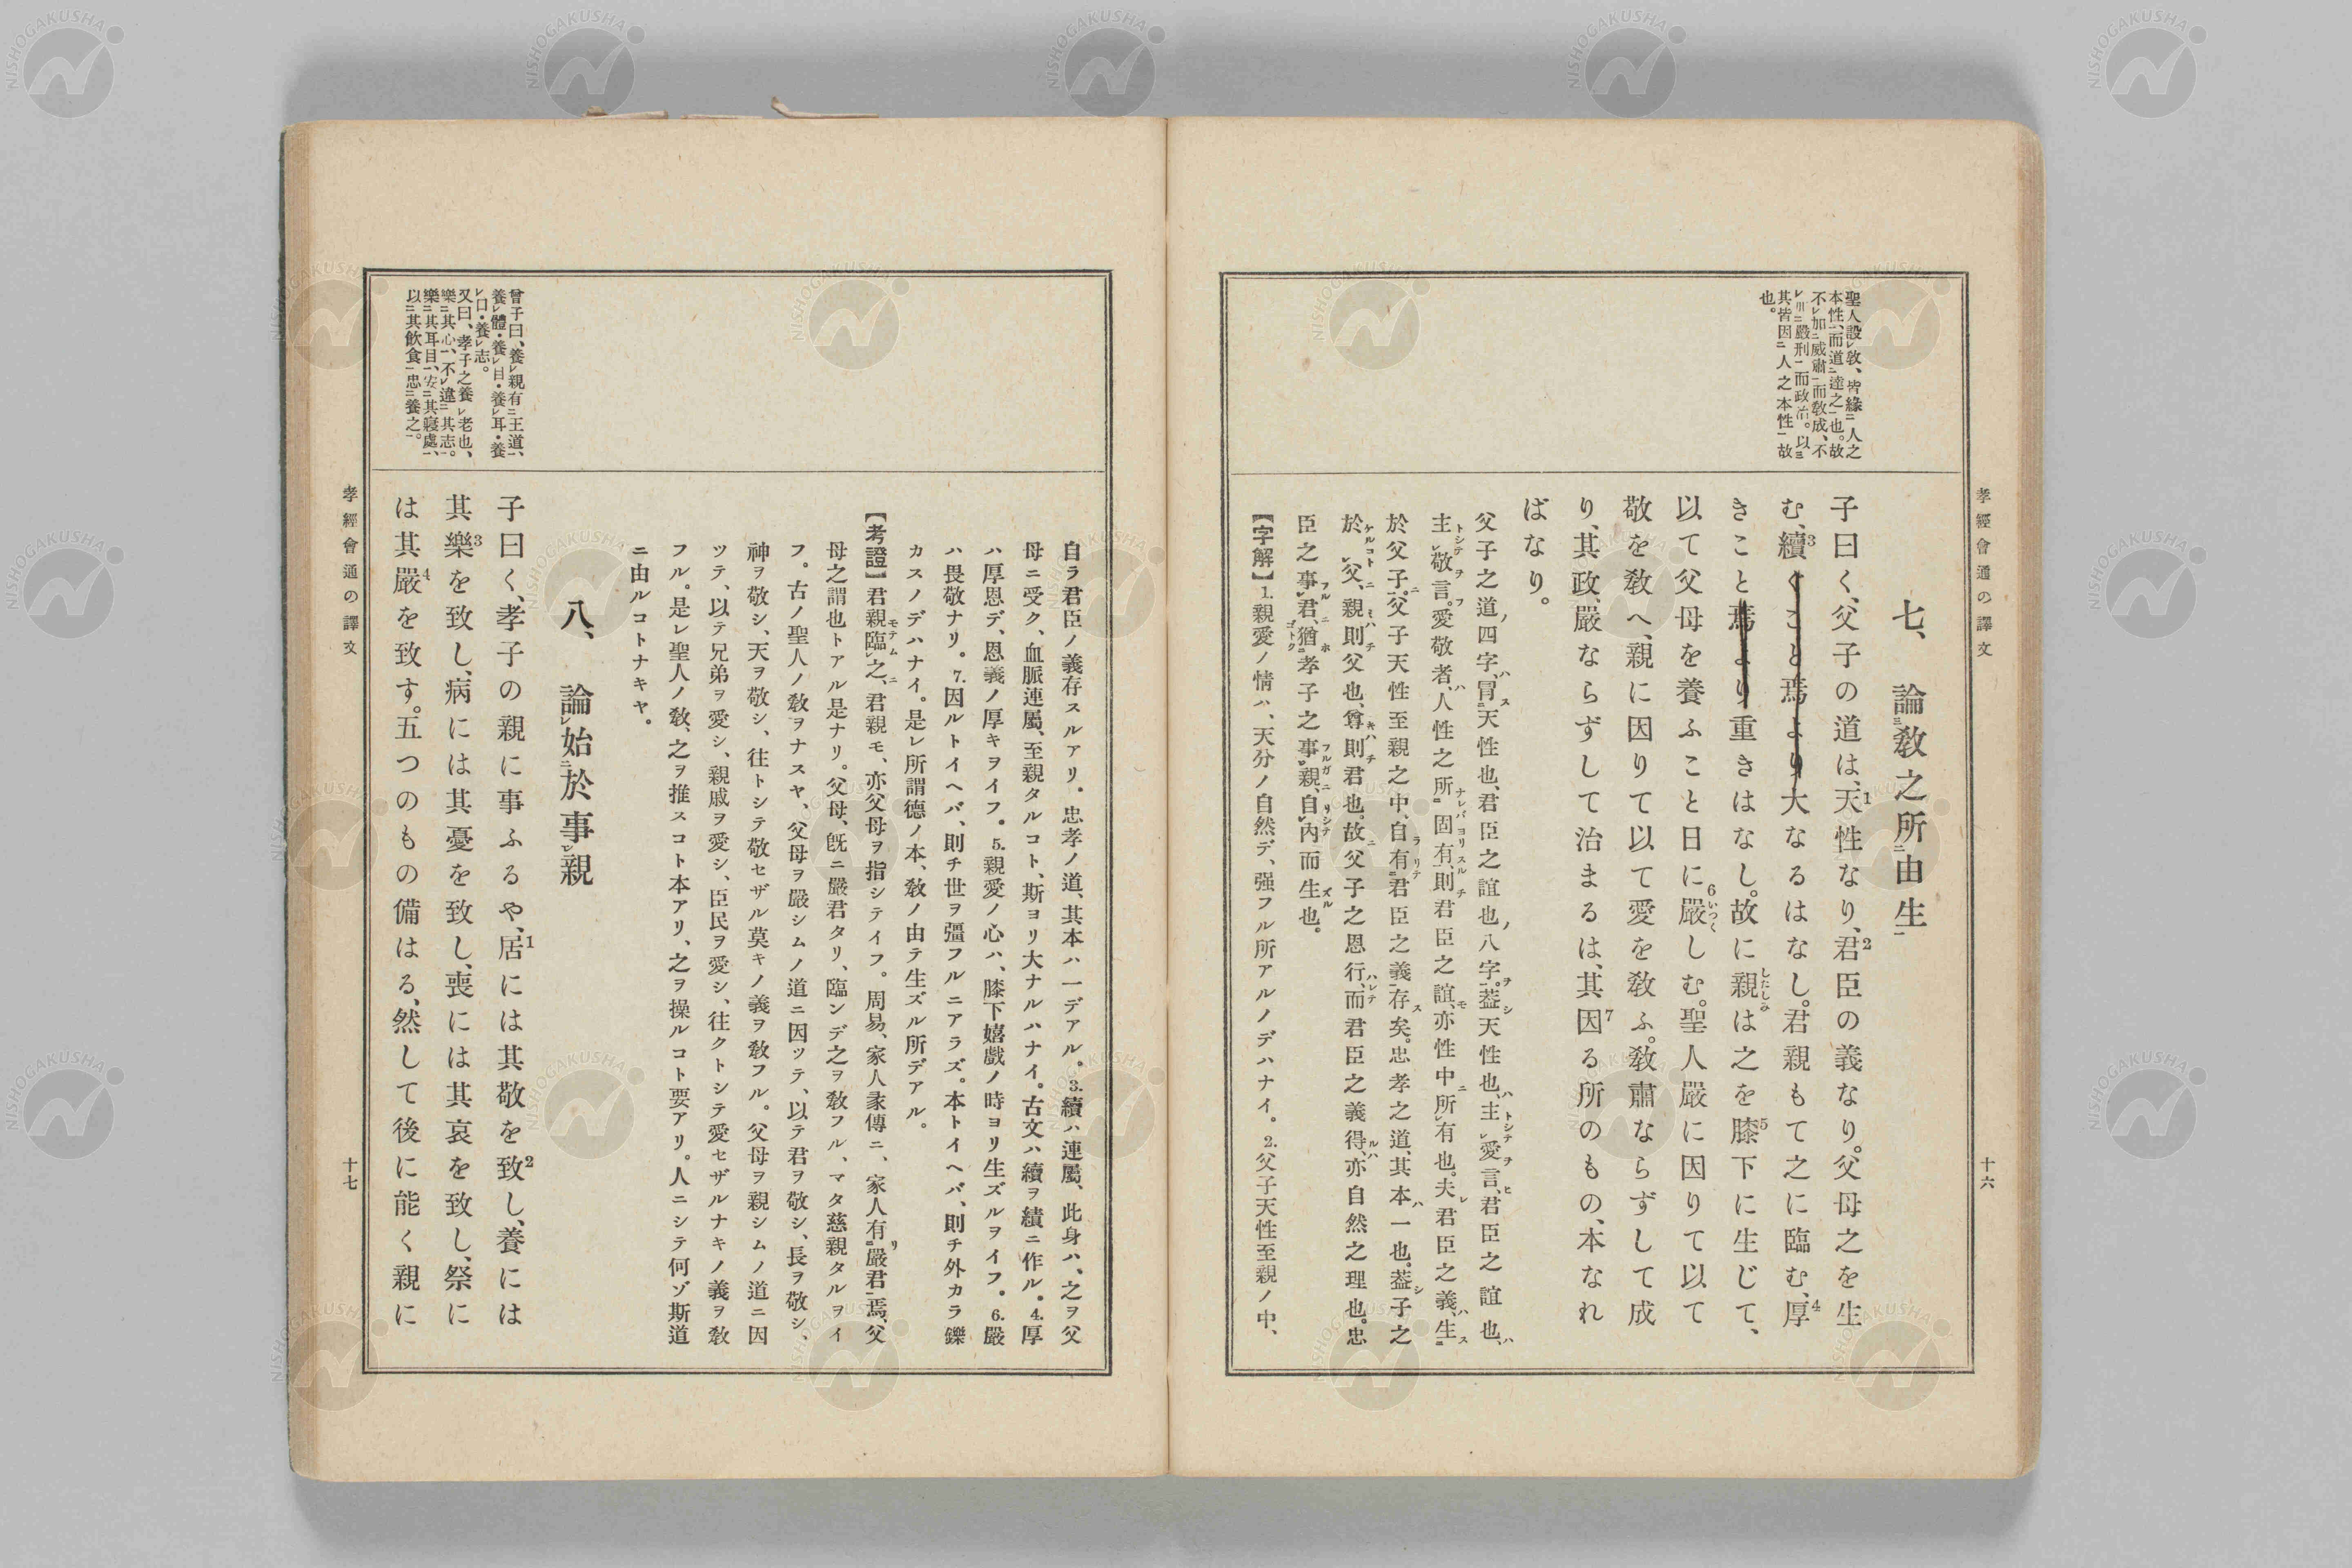 孝經會通の譯文
十六
聖人設レ敎、皆緣ニ人之
本性、而道ニ達之一也。故
不レ加ニ威肅一而敎成、不
レ嚴刑一而政治。以ミ
其皆因ニ人之本性一故
也。
七、論ミ敎之所ニ由生一
子曰く、父子の道は、天1性なり、君2臣の義なり。父母之を生
む、續3くこと焉より大なるはなし。君親もて之に臨む、厚4
きこと焉より重きはなし。故に親したしみは之を膝5下に生じて、
以て父母を養ふこと日に嚴6いつくしむ。聖人嚴に因りて以て
敬を敎へ、親に因りて以て愛を敎ふ。敎肅ならずして成
り、其政、嚴ならずして治まるは、其因7る所のもの、本なれ
ばなり。
父子之道ノ四字、冐スニ天性也、君臣之誼也ノ八字ヲ。葢シ天性也ハ、主トシテレ愛ヲ言ヒ、君臣之誼也ハ、
主トシテレ敬ヲ言フ。愛敬者ハ、人性之所ナレバニ固ヨリ有スル一、則チ君臣之誼モ、亦性中ニ所レ有也。夫レ君臣之義ハ、生スニ
於父子ニ一。父子天性至親之中、自ラ有リテニ君臣之義一存ス矣。忠孝之道、其本ハ一也。葢シ子之
於ケルコトレ父ニ、親ミハ則チ父也、尊キハ則チ君也。故ニ父子之恩行ハレテ、而君臣之義得ルハ、亦自然之理也。忠
臣之事フルレ君ニ、猶ホゴトクニ孝子之事フルガレ親ニ、自リシテレ內而生ズル也。
【字解】1.親愛ノ情ハ、天分ノ自然デ、强フル所アルノデハナイ。2.父子天性至親ノ中、
自ラ君臣ノ義存スルアリ。忠孝ノ道、其本ハ一デアル。3.續ハ連屬、此身ハ、之ヲ父
母ニ受ク、血脈連屬、至親タルコト、斯ヨリ大ナルハナイ。古文ハ續ヲ績ニ作ル。4.厚
ハ厚恩デ、恩義ノ厚キヲイフ。5.親愛ノ心ハ、膝下嬉戲ノ時ヨリ生ズルヲイフ。6.嚴
ハ畏敬ナリ。7.因ルトイヘバ、則チ世ヲ彊フルニアラズ。本トイヘバ、則チ外カラ鑠
カスノデハナイ。是レ所謂德ノ本、敎ノ由テ生ズル所デアル。
【考證】君親臨モテムレ之ニ、君親モ、亦父母ヲ指シテイフ。周易、家人彖傳ニ、家人有リニ嚴君一焉、父
母之謂也トアル是ナリ。父母、旣ニ嚴君タリ、臨ンデ之ヲ敎フル、マタ慈親タルヲイ
フ。古ノ聖人ノ敎ヲナスヤ、父母ヲ嚴シムノ道ニ因ツテ、以テ君ヲ敬シ、長ヲ敬シ、
神ヲ敬シ、天ヲ敬シ、往トシテ敬セザル莫キノ義ヲ敎フル。父母ヲ親シムノ道ニ因
ツテ、以テ兄弟ヲ愛シ、親戚ヲ愛シ、臣民ヲ愛シ、往クトシテ愛セザルナキノ義ヲ敎
フル。是レ聖人ノ敎、之ヲ推スコト本アリ、之ヲ操ルコト要アリ。人ニシテ何ゾ斯道
ニ由ルコトナキヤ。
曾子曰、養レ親有ニ王道一、
養レ體・養レ目・養レ耳・養
レ口・養レ志。
又曰、孝子之養レ老也、
樂ニ其心一、不レ違ニ其志一。
樂ニ其耳目一、安ニ其寢處一、
以ニ其飮食一忠ニ養之一。
八、論レ始ニ於事レ親
子曰く、孝子の親に事ふるや、居1には其敬を致2し、養には
其樂3を致し、病には其憂を致し、喪には其哀を致し、祭に
は其嚴4を致す。五つのもの備はる、然して後に能く親に
孝經會通の譯文
十七
NISHOGAKUSHA